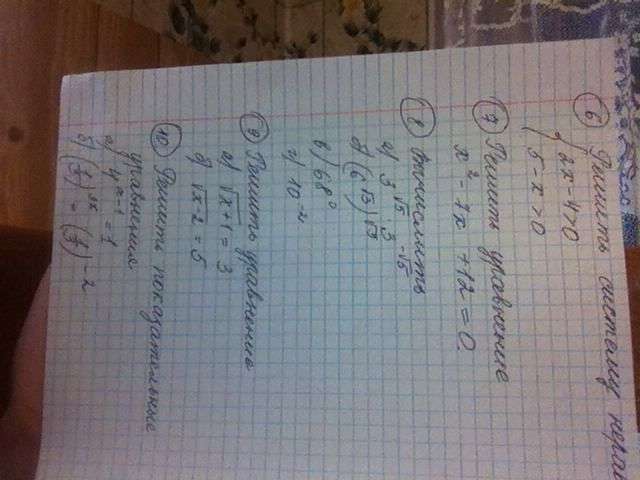 ⑥ Решить систему нерав
{ 2x-4>0
5-x>0
⑦ Решить уравнение
x² - 7x + 12 = 0.
⑧ Вычислить
а) 3^√5 · 3^-√5
б) (6^√3)^√3
в) 68⁰
г) 10⁻²
⑨ Решить уравнению
а) √x+1 = 3
б) √x-2 = 5
⑩ Решить показательные
уравнения
а) 4^x-1 = 1
б) (1/3)^2x = (1/3)^-2